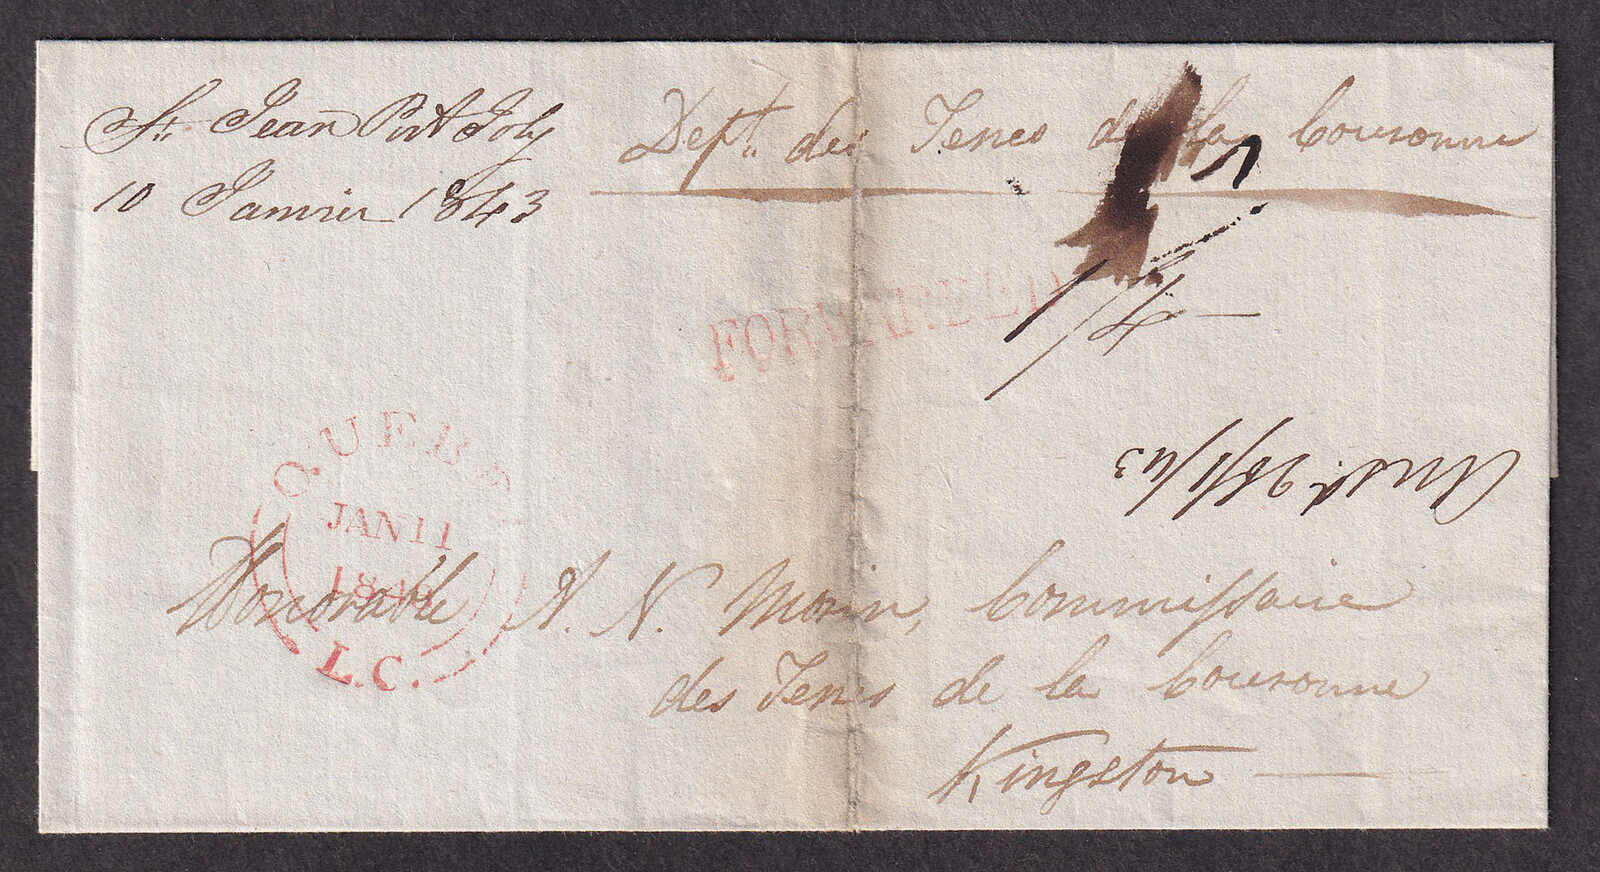 St. Jean Port Joly
10 Janvier 1843
Dept. des Terres de la Couronne
FORWARDED
1/4
Ansd. 26/1/43
QUEBEC
JAN 11
184
L.C.
Honorable A. N. Morin, Commissaire
des Terres de la Couronne
Kingston